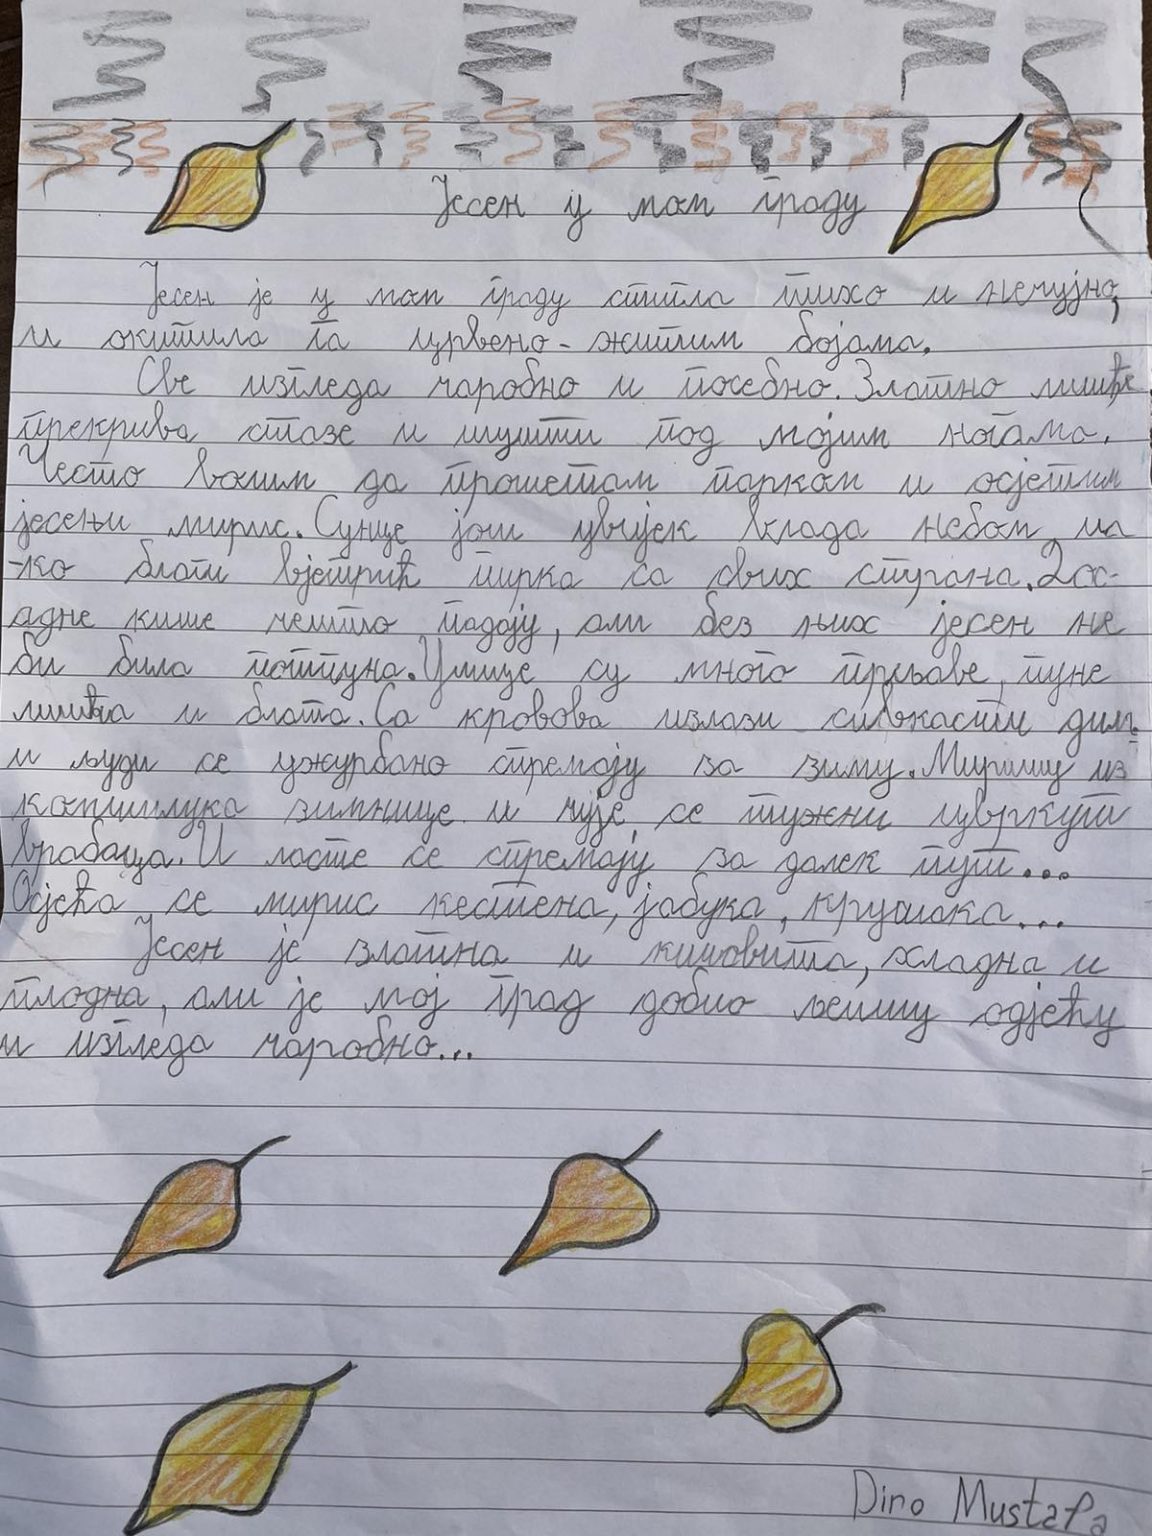 Јесен у мом граду
Јесен је у мом граду стигла тихо и нечујно,
и окитила га црвено-житим бојама.
Све изгледа чаробно и посебно. Златно лишће
прекрива стазе и шушти под мојим ногама.
Често волим да прошетам парком и осјетим
јесењи мирис. Сунце још увијек влада небом, иа
-ко благи вјетрић пирка са свих страна. Дос-
адне кише чешто падају, али без њих јесен не
би била потпуна. Улице су много прљаве, пуне
лишћа и блата. Са кровова излази сивкасти дим
и људи се ужурбано спремају за зиму. Миришу из
комшилука зимнице и чује се тужни цвркут
врабаца. И ласте се спремају за далек пут...
Осјећа се мирис кестена, јабука, крушака...
Јесен је златна и кишовита, хладна и
плодна, али је мој град добио љепшу одјећу
и изгледа чаробно...
Dino Mustafa